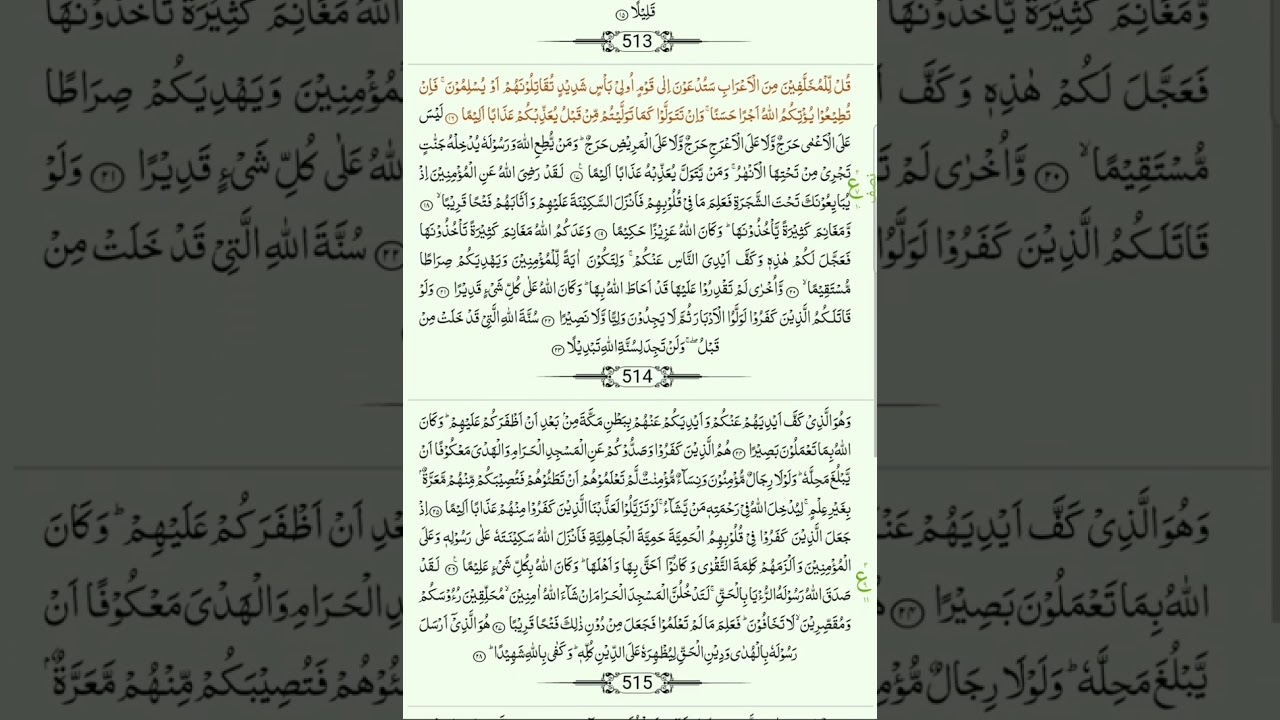 قَلِيْلًا ۝۱۵
513
قُلْ لِّلْمُخَلَّفِيْنَ مِنَ الْاَعْرَابِ سَتُدْعَوْنَ اِلٰى قَوْمٍ اُولِيْ بَاْسٍ شَدِيْدٍ تُقَاتِلُوْنَهُمْ اَوْ يُسْلِمُوْنَ ۚ فَاِنْ
تُطِيْعُوْا يُؤْتِكُمُ اللّٰهُ اَجْرًا حَسَنًا ۚ وَاِنْ تَتَوَلَّوْا كَمَا تَوَلَّيْتُمْ مِّنْ قَبْلُ يُعَذِّبْكُمْ عَذَابًا اَلِيْمًا ۝۱۶ لَيْسَ
عَلَى الْاَعْمٰى حَرَجٌ وَّلَا عَلَى الْاَعْرَجِ حَرَجٌ وَّلَا عَلَى الْمَرِيْضِ حَرَجٌ ؕ وَمَنْ يُّطِعِ اللّٰهَ وَرَسُوْلَهٗ يُدْخِلْهُ جَنّٰتٍ
تَجْرِيْ مِنْ تَحْتِهَا الْاَنْهٰرُ ۚ وَمَنْ يَّتَوَلَّ يُعَذِّبْهُ عَذَابًا اَلِيْمًا ۝۱۷ لَقَدْ رَضِيَ اللّٰهُ عَنِ الْمُؤْمِنِيْنَ اِذْ
يُبَايِعُوْنَكَ تَحْتَ الشَّجَرَةِ فَعَلِمَ مَا فِيْ قُلُوْبِهِمْ فَاَنْزَلَ السَّكِيْنَةَ عَلَيْهِمْ وَاَثَابَهُمْ فَتْحًا قَرِيْبًا ۙ۝۱۸
وَّمَغَانِمَ كَثِيْرَةً يَّاْخُذُوْنَهَا ؕ وَكَانَ اللّٰهُ عَزِيْزًا حَكِيْمًا ۝۱۹ وَعَدَكُمُ اللّٰهُ مَغَانِمَ كَثِيْرَةً تَاْخُذُوْنَهَا
فَعَجَّلَ لَكُمْ هٰذِهٖ وَكَفَّ اَيْدِيَ النَّاسِ عَنْكُمْ ۚ وَلِتَكُوْنَ اٰيَةً لِّلْمُؤْمِنِيْنَ وَيَهْدِيَكُمْ صِرَاطًا
مُّسْتَقِيْمًا ۙ۝۲۰ وَّاُخْرٰى لَمْ تَقْدِرُوْا عَلَيْهَا قَدْ اَحَاطَ اللّٰهُ بِهَا ؕ وَكَانَ اللّٰهُ عَلٰى كُلِّ شَيْءٍ قَدِيْرًا ۝۲۱ وَلَوْ
قَاتَلَكُمُ الَّذِيْنَ كَفَرُوْا لَوَلَّوُا الْاَدْبَارَ ثُمَّ لَا يَجِدُوْنَ وَلِيًّا وَّلَا نَصِيْرًا ۝۲۲ سُنَّةَ اللّٰهِ الَّتِيْ قَدْ خَلَتْ مِنْ
قَبْلُ ۖۚ وَلَنْ تَجِدَ لِسُنَّةِ اللّٰهِ تَبْدِيْلًا ۝۲۳
514
وَهُوَ الَّذِيْ كَفَّ اَيْدِيَهُمْ عَنْكُمْ وَاَيْدِيَكُمْ عَنْهُمْ بِبَطْنِ مَكَّةَ مِنْۢ بَعْدِ اَنْ اَظْفَرَكُمْ عَلَيْهِمْ ؕ وَكَانَ
اللّٰهُ بِمَا تَعْمَلُوْنَ بَصِيْرًا ۝۲۴ هُمُ الَّذِيْنَ كَفَرُوْا وَصَدُّوْكُمْ عَنِ الْمَسْجِدِ الْحَرَامِ وَالْهَدْيَ مَعْكُوْفًا اَنْ
يَّبْلُغَ مَحِلَّهٗ ؕ وَلَوْلَا رِجَالٌ مُّؤْمِنُوْنَ وَنِسَآءٌ مُّؤْمِنٰتٌ لَّمْ تَعْلَمُوْهُمْ اَنْ تَطَـُٔوْهُمْ فَتُصِيْبَكُمْ مِّنْهُمْ مَّعَرَّةٌۢ
بِغَيْرِ عِلْمٍ ۚ لِيُدْخِلَ اللّٰهُ فِيْ رَحْمَتِهٖ مَنْ يَّشَآءُ ۚ لَوْ تَزَيَّلُوْا لَعَذَّبْنَا الَّذِيْنَ كَفَرُوْا مِنْهُمْ عَذَابًا اَلِيْمًا ۝۲۵ اِذْ
جَعَلَ الَّذِيْنَ كَفَرُوْا فِيْ قُلُوْبِهِمُ الْحَمِيَّةَ حَمِيَّةَ الْجَاهِلِيَّةِ فَاَنْزَلَ اللّٰهُ سَكِيْنَتَهٗ عَلٰى رَسُوْلِهٖ وَعَلَى
الْمُؤْمِنِيْنَ وَاَلْزَمَهُمْ كَلِمَةَ التَّقْوٰى وَكَانُوْۤا اَحَقَّ بِهَا وَاَهْلَهَا ؕ وَكَانَ اللّٰهُ بِكُلِّ شَيْءٍ عَلِيْمًا ۝۲۶ لَقَدْ
صَدَقَ اللّٰهُ رَسُوْلَهُ الرُّءْيَا بِالْحَقِّ ۚ لَتَدْخُلُنَّ الْمَسْجِدَ الْحَرَامَ اِنْ شَآءَ اللّٰهُ اٰمِنِيْنَ ۙ مُحَلِّقِيْنَ رُءُوْسَكُمْ
وَمُقَصِّرِيْنَ ۙ لَا تَخَافُوْنَ ؕ فَعَلِمَ مَا لَمْ تَعْلَمُوْا فَجَعَلَ مِنْ دُوْنِ ذٰلِكَ فَتْحًا قَرِيْبًا ۝۲۷ هُوَ الَّذِيْۤ اَرْسَلَ
رَسُوْلَهٗ بِالْهُدٰى وَدِيْنِ الْحَقِّ لِيُظْهِرَهٗ عَلَى الدِّيْنِ كُلِّهٖ ؕ وَكَفٰى بِاللّٰهِ شَهِيْدًا ؕ۝۲۸
515